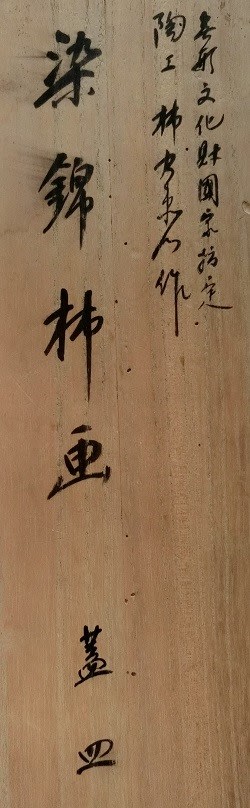 無形文化財國家指定
陶工 柿右衛門作
染錦柿画 蓋皿